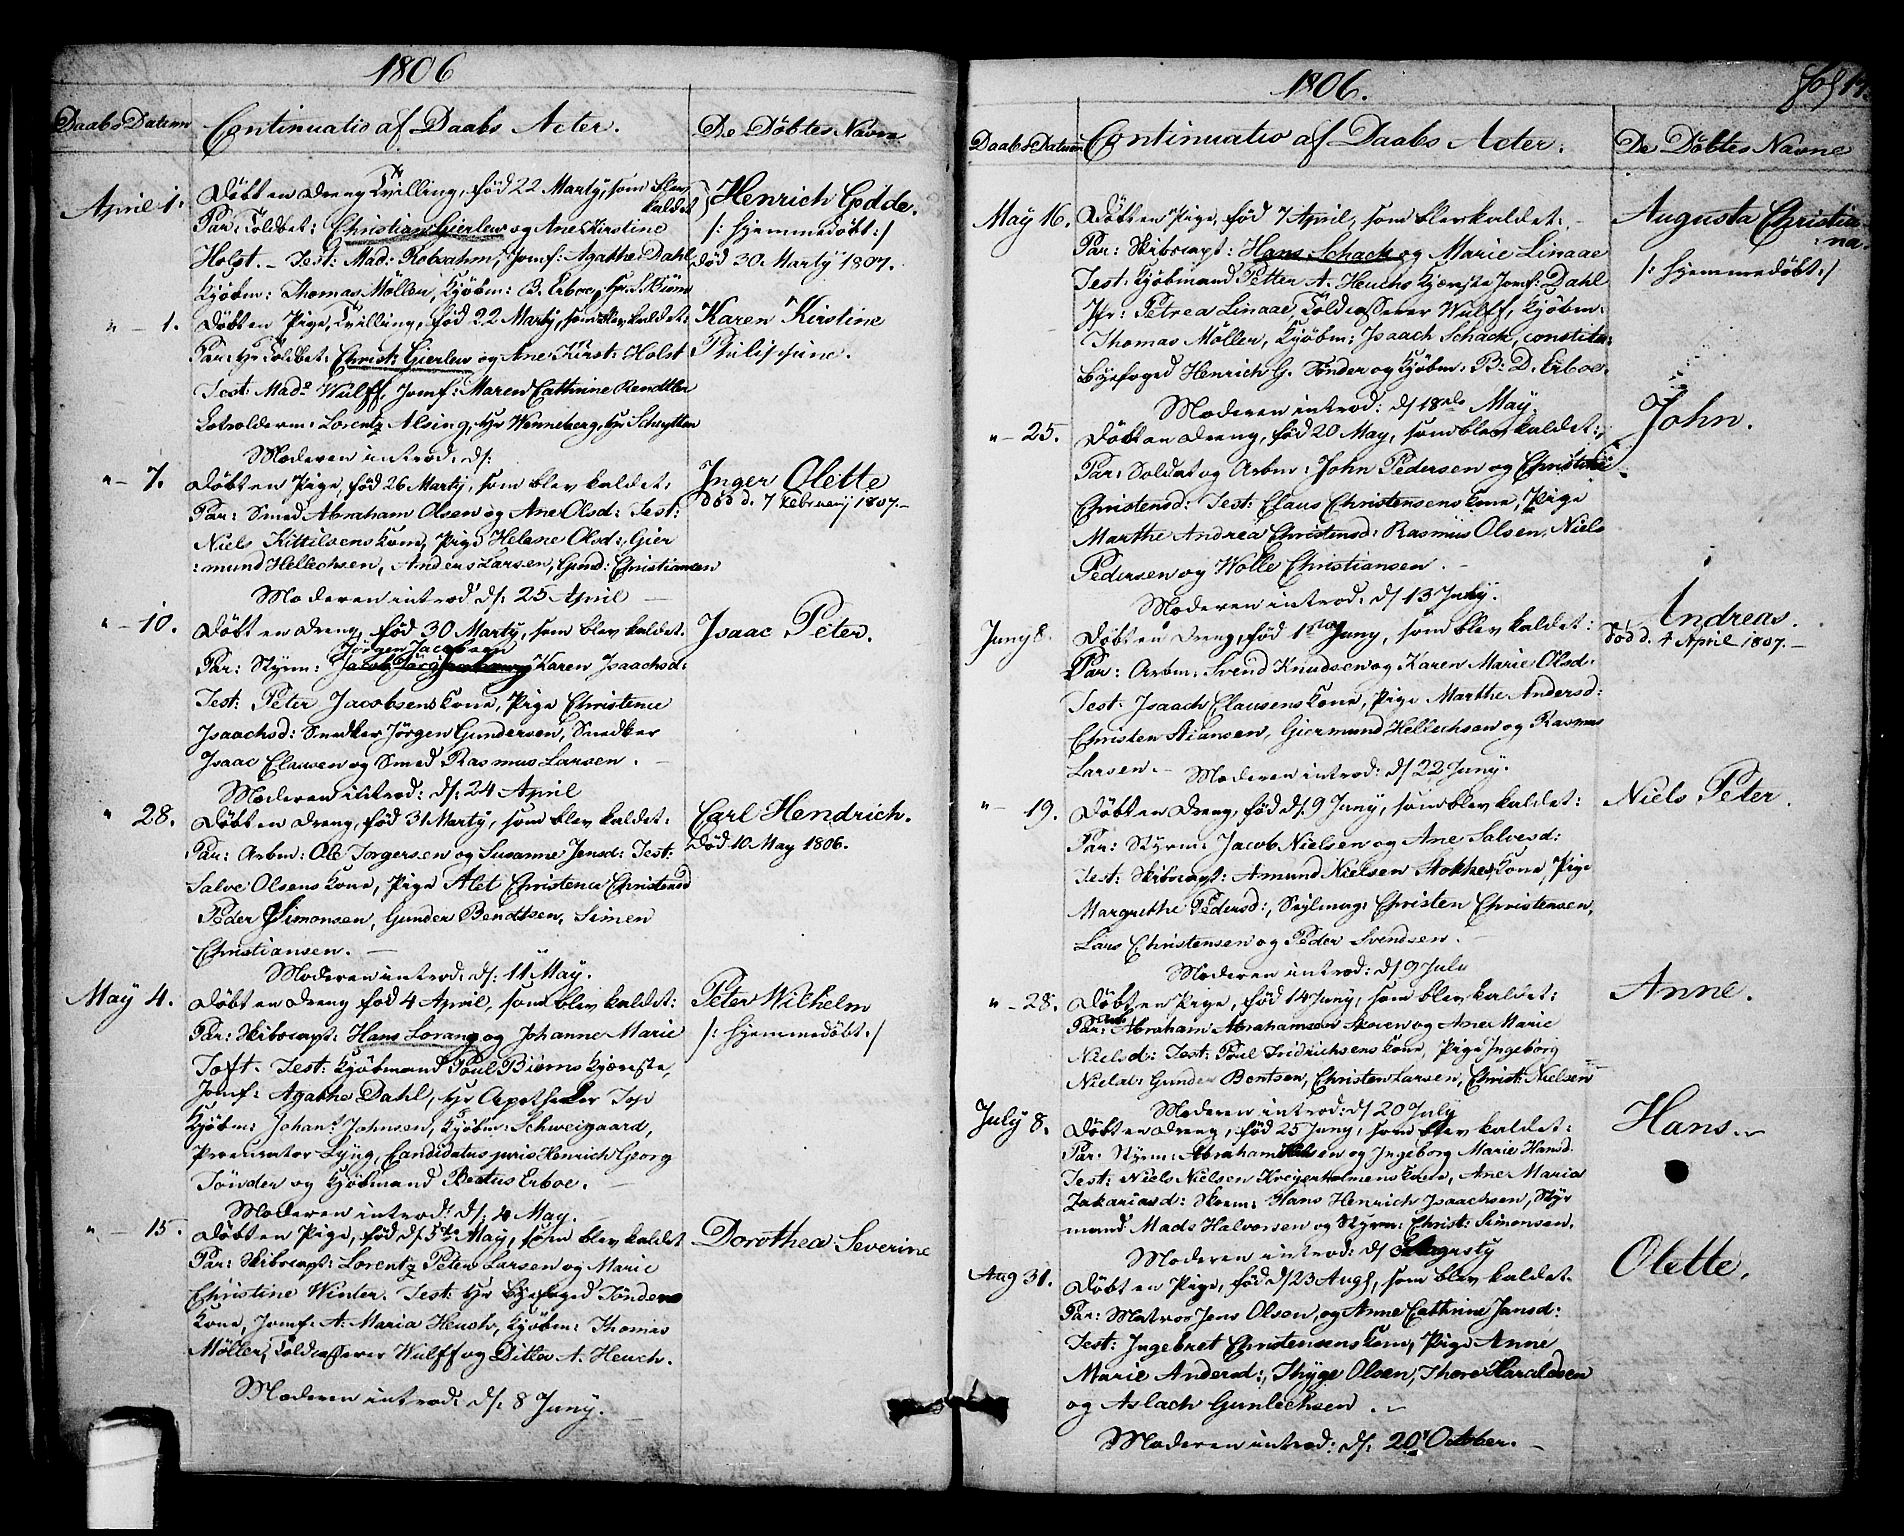 1806
Daabs Datum
Continuatio af Daabs Acter.
De Döbtes Navne
April 1.
Döbt en Dreng Tvilling, föd 22 Martÿ, som blev kaldet
Henrich Gedde.
Par: Toldbet: Christian Gierlew og Ane Kirstine
/: hjemmedöbt :/
Holst. - Test: Mad: Robrahn, Jomf: Agathe Dahl
död 30 Marty 1807.
Kjöbm: Thomas Möller, Kjöbm: B. Erboe, Hr: S. Biörn
" - 1.
Döbt en Pige, Tvilling, föd 22 Marty, som blev kaldet:
Karen Kirstine
Par: Hr Toldbet: Christ: Gierlew og Ane Kirst: Holst
Philippine.
Test: Mad: Wulff, Jomf: Maren Cathrine Rendtler
Lotsolderm: Lorentz Alsing, Hr Wenneberg, Hr Scheytten
Moderen introd: d/:
" - 7.
Döbt en Pige, föd 26 Marty, som blev kaldet:
Inger Olette
Par: Smed Abraham Olsen og Ane Olsd: Test:
död d. 7 February 1807.-
Niels Kittilsens Kone, Pige Helene Olsd:, Gier
:mund Hellechsen, Anders Larsen, Gund: Christiansen
Moderen introd d/: 25 April
" - 10.
Döbt en Dreng, föd 30 Marty, som blev kaldet.
Isaac Peter.
Jörgen Jacobsen
Par: Styrm: Karen Isaachsd:
Test: Peter Jacobsens Kone, Pige Christence
Isaachsd: Snedker Jörgen Gundersen, Snedker
Isaac Clausen og Smed Rasmus Larsen. -
Moderen introd: d/: 24 April
" 28.
Döbt en Dreng, föd 31 Marty, som blev kaldet:
Carl Hendrich.
Par: Arbm: Ole Torgersen og Susanne Jensd: Test:
död 10. May 1806.
Salve Olsens Kone, Pige Alet Christence Christensd
Peder Simonsen, Gunder Bendtsen, Simen
Christiansen. -
Moderen introd: d/: 11 May.
May 4.
Döbt en Dreng föd 4 April, som blev kaldet:
Peter Wilhelm
Par: Skibscapt: Hans Lorang og Johanne Marie
/: hjemmedöbt :/
Toft. Test: Kjöbmand Poul Biörns Kjæreste,
Jomf: Agathe Dahl, Hr Apotheker Top
Kjöbm: Johan: Johnsen, Kjöbm: Schweigaard,
Procurator Lyng, Candidatus juris Henrich Georg
Tönder og Kjöbmand Beatus Erboe. -
Moderen introd: d/: 4 May.
" - 15.
Döbt en Pige, föd d/ 5te May, som blev kaldet
Dorothea Severine
Par: Skibscapt: Lorentz Peter Larsen og Marie
Christine Winter. Test: Hr Byefoged Tönders
Kone, Jomf: A: Maria Heuch, Kjöbm: Thomas
Möller, Toldcasserer Wulff og Ditlev A. Heuch.
Moderen introd: d/: 8 Juny.
1806.
fol 17
Daabs Datum
Continuatio af Daabs Acter.
De Döbtes Navne
May 16.
Döbt en Pige, föd 7 April, som blev kaldet:
Augusta Christia-
:na.
Par: Skibscapt: Hans Schack og Marie Linaae
/: hjemmedöbt :/
Test: Kjöbmand Petter A. Heuchs Kjæreste Jomf: Dahl
Jfr: Petrea Linaae, Toldcasserer Wulff, Kjöbm:
Thomas Möller, Kjöbm: Isaach Schack, constitu:
Byefoged Henrich G. Tönder og Kjöbm. B: D. Erboe.
Moderen introd: d/ 18de May.
" - 25.
Döbt en Dreng, föd 20 May, som blev kaldet:
John.
Par: Soldat og Arbm: John Pedersen og Christine
Christensd: Test: Claus Christensens Kone, Pige
Marthe Andrea Christensd: Rasmus Olsen, Niels
Pedersen og Wolle Christiansen. -
Moderen introd: d/ 13 July.
Juny 8.
Döbt en Dreng, föd 1ste Juny, som blev kaldet:
Andreas.
Par: Arbm: Svend Knudsen og Karen Marie Olsd:
död d. 4 April 1807.-
Test: Isaach Clausens Kone, Pige Marthe Andersd:
Christen Aiansen, Giermund Hellechsen og Rasmus
Larsen. - Moderen introd: d/ 22 Juny.
" - 19.
Döbt en Dreng, föd d/ 9 Juny, som blev kaldet:
Niels Peter.
Par: Styrm: Jacob Nielsen og Ane Salvesd:
Test: Skibscapt: Amund Nielsen Stokkes Kone, Pige
Margrethe Pedersd:, Seylmag: Christen Christensen,
Lars Christensen og Peder Svendsen. -
Moderen introd: d/ 9 July
" - 28.
Döbt en Pige, föd 14 Juny, som blev kaldet:
Anne.
Par: Abraham Abrahamsen Skeren og Ane Marie
Nielsd: Test: Poul Fridrichsens Kone, Pige Ingeborg
Nielsd: Gunder Bentsen, Christen Larsen, Christ: Nielsen
Moderen introd: d/ 20 July
July 8.
Döbt en Dreng, föd 25 Juny, som blev kaldet:
Hans.
Par: Styrm: Abraham og Ingeborg Marie Hansd.
Test: Niels Nielsen Kreyerholmens Kone, Ane Maria
Zakariasd: Skom: Hans Henrich Isaachsen, Styr
mand Mads Halvorsen og Styrm: Christ: Simonsen.
Moderen introd: d/ Augusty
Aug 31.
Döbt en Pige, föd d/ 23 Aug/, som blev kaldet.
Olette.
Par: Matros Jens Olsen, og Anne Cathrine Jansd:
Test: Ingebret Christensens Kone, Pige Anne
Marie Andersd:, Thyge Olsen, Thore Haraldsen
og Aslach Gunlechsen.
Moderen introd: d/: 20 October. -